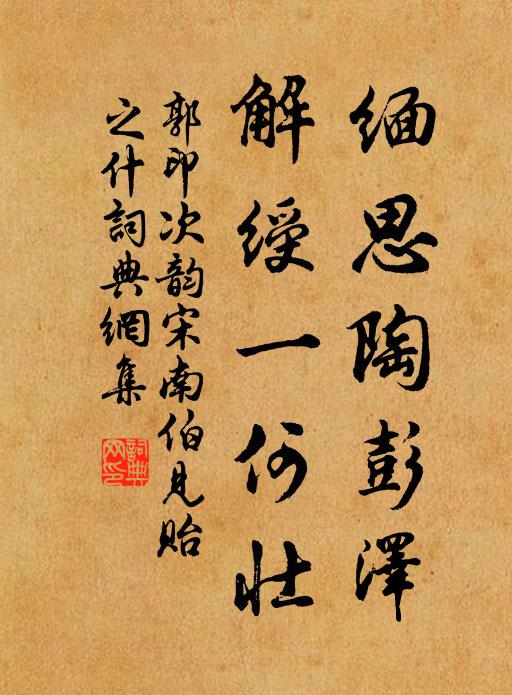 緬思陶彭澤
解綬一何壯
郭印次韵宋南伯見貽
之什詞典網集
詞典网印